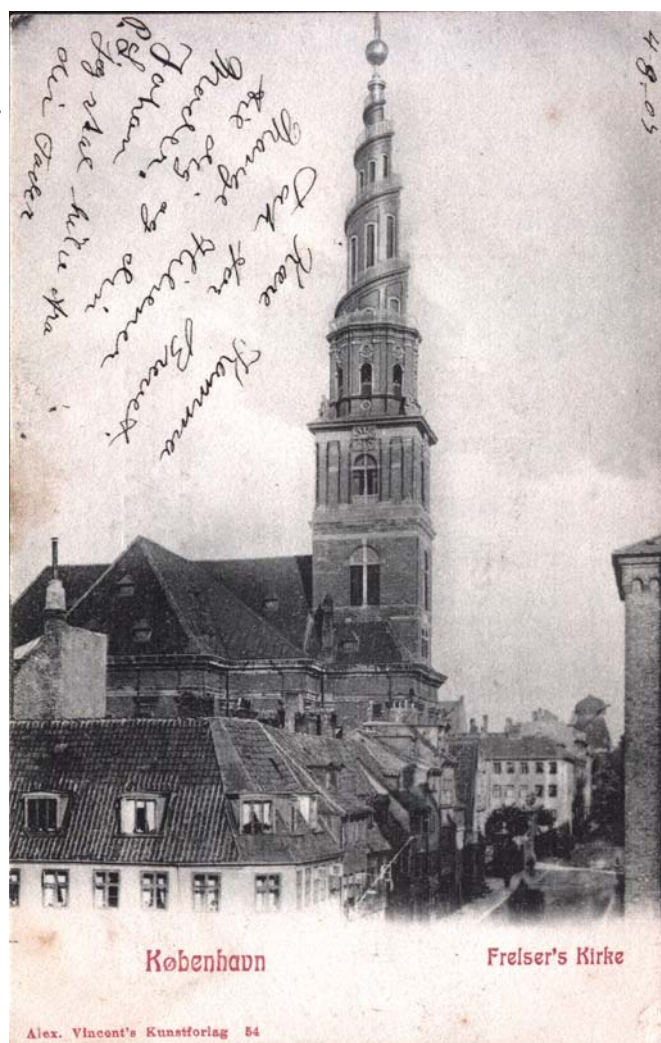 4 8-03
Kære Kamma
Tak for Brevet.
Mange Hilsener
til dig og din
Moder.
Johan
P.S.
Jeg skal hilse fra
din Fader
København
Frelser's Kirke
Alex. Vincent's Kunstforlag 54